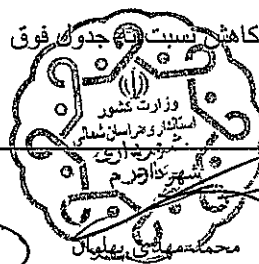 کاهش نسبت به جدول فوق
وزارت کشور
استانداری خراسان شمالی
شهرداری
محمدمهدی پهلوان